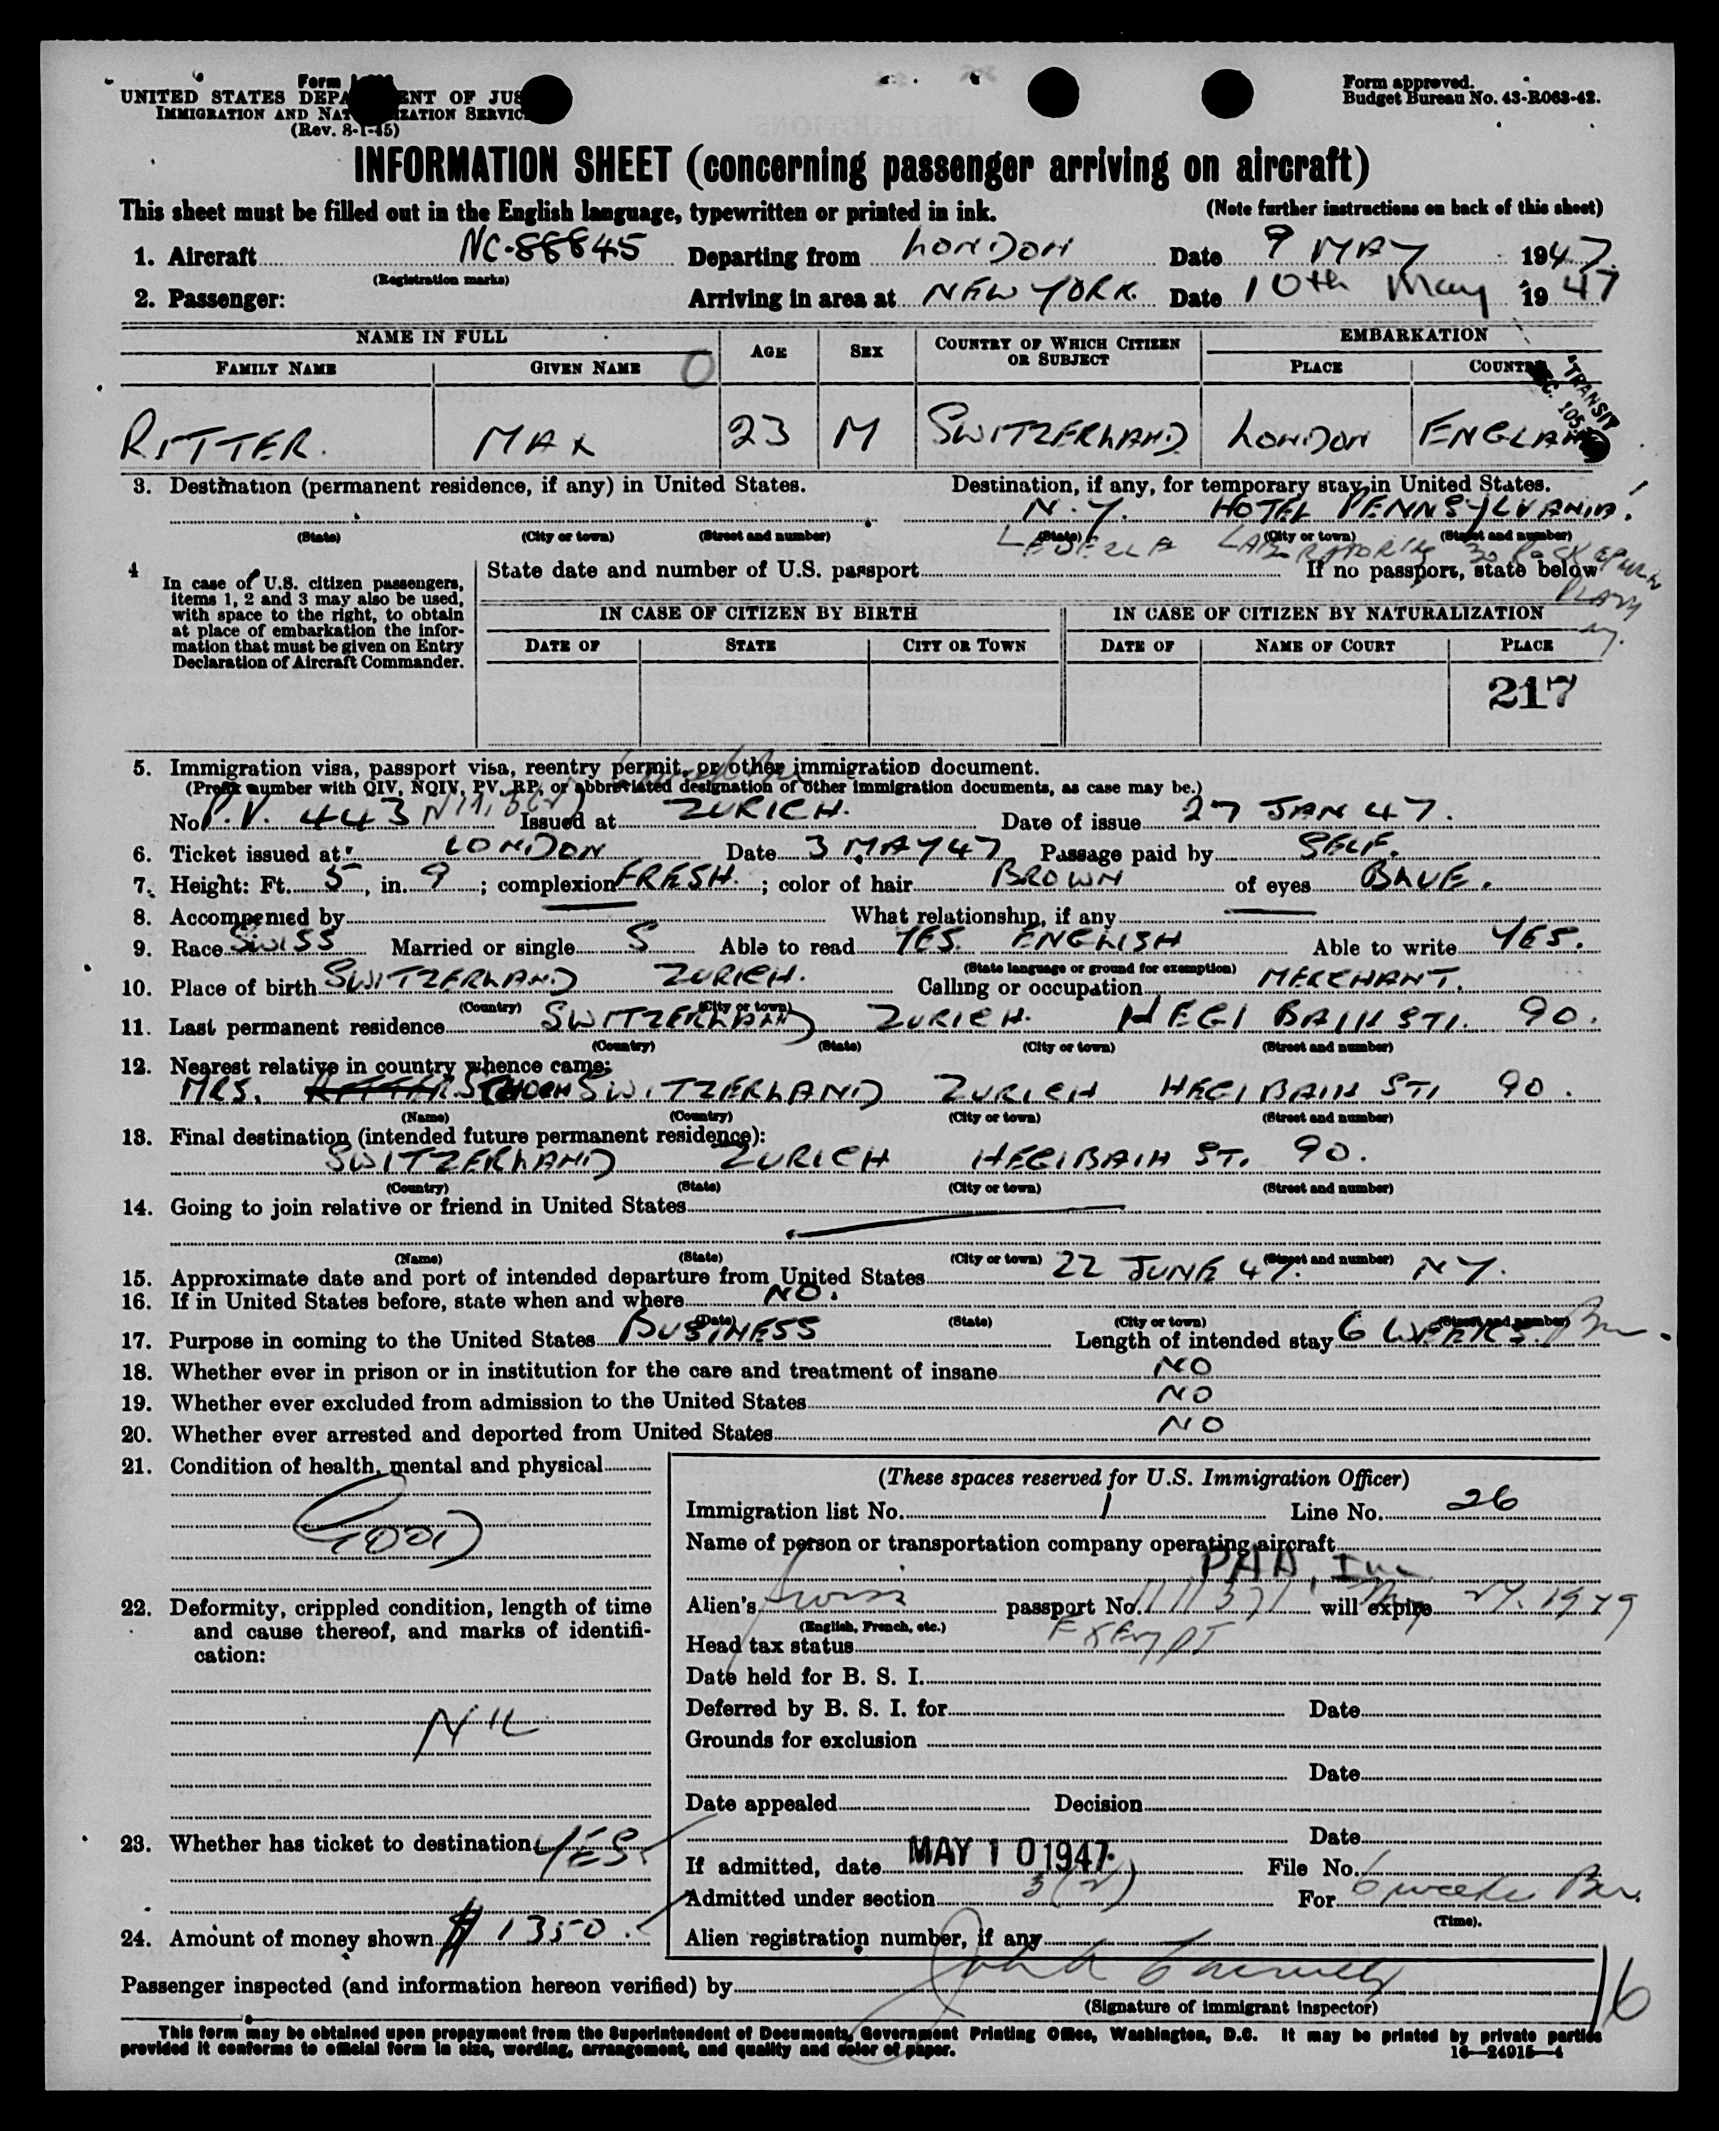 Form
UNITED STATES DEPA ENT OF JUS
IMMIGRATION AND NAT ZATION SERVIC
(Rev. 8-1-45)
Form approved.
Budget Bureau No. 43-R063-42.
INFORMATION SHEET (concerning passenger arriving on aircraft)
This sheet must be filled out in the English language, typewritten or printed in ink.
(Note further instructions on back of this sheet)
1. Aircraft NC-88845 Departing from LONDON Date 9 MAY 1947
(Registration marks)
2. Passenger: Arriving in area at NEW YORK Date 10th May 1947
NAME IN FULL AGE SEX COUNTRY OF WHICH CITIZEN OR SUBJECT EMBARKATION
FAMILY NAME GIVEN NAME O PLACE COUNTRY
TRANSIT
RITTER. MAX 23 M SWITZERLAND LONDON ENGLAND
3. Destination (permanent residence, if any) in United States. Destination, if any, for temporary stay in United States.
N.Y. HOTEL PENNSYLVANIA!
(State) (City or town) (Street and number) (State) (City or town) (Street and number)
LEDERLE LABORATORIES 30 ROCKEFELLER PLAZA
N.Y.
4 In case of U.S. citizen passengers, items 1, 2 and 3 may also be used, with space to the right, to obtain at place of embarkation the information that must be given on Entry Declaration of Aircraft Commander.
State date and number of U.S. passport If no passport, state below
IN CASE OF CITIZEN BY BIRTH IN CASE OF CITIZEN BY NATURALIZATION
DATE OF STATE CITY OR TOWN DATE OF NAME OF COURT PLACE
217
5. Immigration visa, passport visa, reentry permit, or other immigration document.
(Prefix number with QIV, NQIV, PV, RP, or abbreviated designation of other immigration documents, as case may be.)
No. P.V. 443 3(2) Issued at ZURICH. Date of issue 27 JAN 47.
6. Ticket issued at LONDON Date 3 MAY 47 Passage paid by SELF.
7. Height: Ft. 5, in. 9; complexion FRESH.; color of hair BROWN of eyes BLUE.
8. Accompanied by What relationship, if any
9. Race SWISS Married or single S Able to read YES ENGLISH Able to write YES.
(State language or ground for exemption)
10. Place of birth SWITZERLAND ZURICH. Calling or occupation MERCHANT.
(Country) (City or town)
11. Last permanent residence SWITZERLAND ZURICH. HEGIBAIH STI. 90.
(Country) (State) (City or town) (Street and number)
12. Nearest relative in country whence came:
MRS. SCHOCH SWITZERLAND ZURICH HEGIBAIH STI 90.
(Name) (Country) (City or town) (Street and number)
13. Final destination (intended future permanent residence):
SWITZERLAND ZURICH HEGIBAIH ST. 90.
(Country) (State) (City or town) (Street and number)
14. Going to join relative or friend in United States
(Name) (State) (City or town) (Street and number)
15. Approximate date and port of intended departure from United States 22 JUNE 47. NY.
16. If in United States before, state when and where NO.
(Date) (State) (City or town) (Street and number)
17. Purpose in coming to the United States BUSINESS Length of intended stay 6 WEEKS.
18. Whether ever in prison or in institution for the care and treatment of insane NO
19. Whether ever excluded from admission to the United States NO
20. Whether ever arrested and deported from United States NO
21. Condition of health, mental and physical
GOOD
22. Deformity, crippled condition, length of time and cause thereof, and marks of identification:
NIL
23. Whether has ticket to destination YES
24. Amount of money shown $1350.
(These spaces reserved for U.S. Immigration Officer)
Immigration list No. 1 Line No. 26
Name of person or transportation company operating aircraft
PAA, Inc
Alien's Swiss passport No. 1111371 will expire May 27. 1949
(English, French, etc.)
Head tax status EXEMPT
Date held for B. S. I.
Deferred by B. S. I. for Date
Grounds for exclusion
Date
Date appealed Decision
Date
If admitted, date MAY 10 1947 File No.
Admitted under section 3(2) For 6 weeks
(Time).
Alien registration number, if any
Passenger inspected (and information hereon verified) by
(Signature of immigrant inspector)
16
This form may be obtained upon prepayment from the Superintendent of Documents, Government Printing Office, Washington, D.C. It may be printed by private parties
provided it conforms to official form in size, wording, arrangement, and quality and color of paper.
16—24915—4